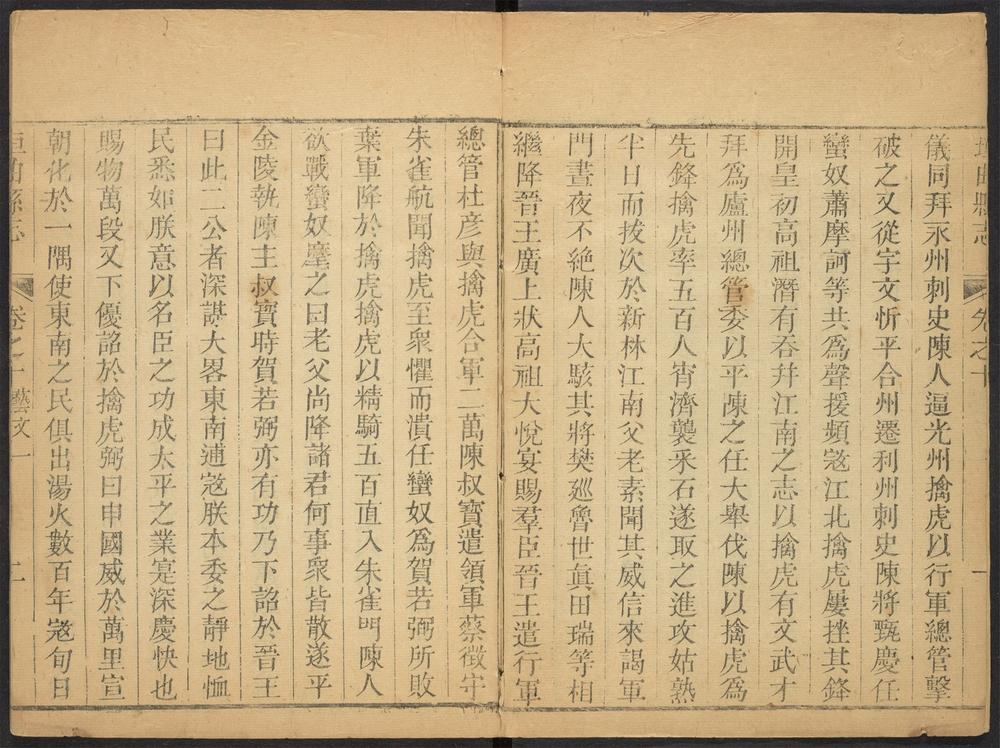 垣曲縣志
卷之十
一
儀同拜永州刺史陳人逼光州擒虎以行軍總管擊
破之又從宇文忻平合州遷利州刺史陳將甄慶任
蠻奴蕭摩訶等共爲聲援頻寇江北擒虎屢挫其鋒
開皇初高祖潛有吞幷江南之志以擒虎有文武才
拜爲廬州總管委以平陳之任大舉伐陳以擒虎爲
先鋒擒虎率五百人宵濟襲采石遂取之進攻姑熟
半日而拔次於新林江南父老素聞其威信來謁軍
門晝夜不絶陳人大駭其將樊廵魯世眞田瑞等相
繼降晉王廣上狀高祖大悅宴賜羣臣晉王遣行軍
總管杜彦與擒虎合軍二萬陳叔寶遣領軍蔡徵守
朱雀航聞擒虎至衆懼而潰任蠻奴爲賀若弼所敗
棄軍降於擒虎擒虎以精騎五百直入朱雀門陳人
欲戰蠻奴麾之曰老父尚降諸君何事衆皆散遂平
金陵執陳主叔寶時賀若弼亦有功乃下詔於晉王
曰此二公者深謀大畧東南逋寇朕本委之靜地恤
民悉如朕意以名臣之功成太平之業寔深慶快也
賜物萬段又下優詔於擒虎弼曰申國威於萬里宣
朝化於一隅使東南之民俱出湯火數百年寇旬日
垣曲縣志
卷之十 藝文一
二